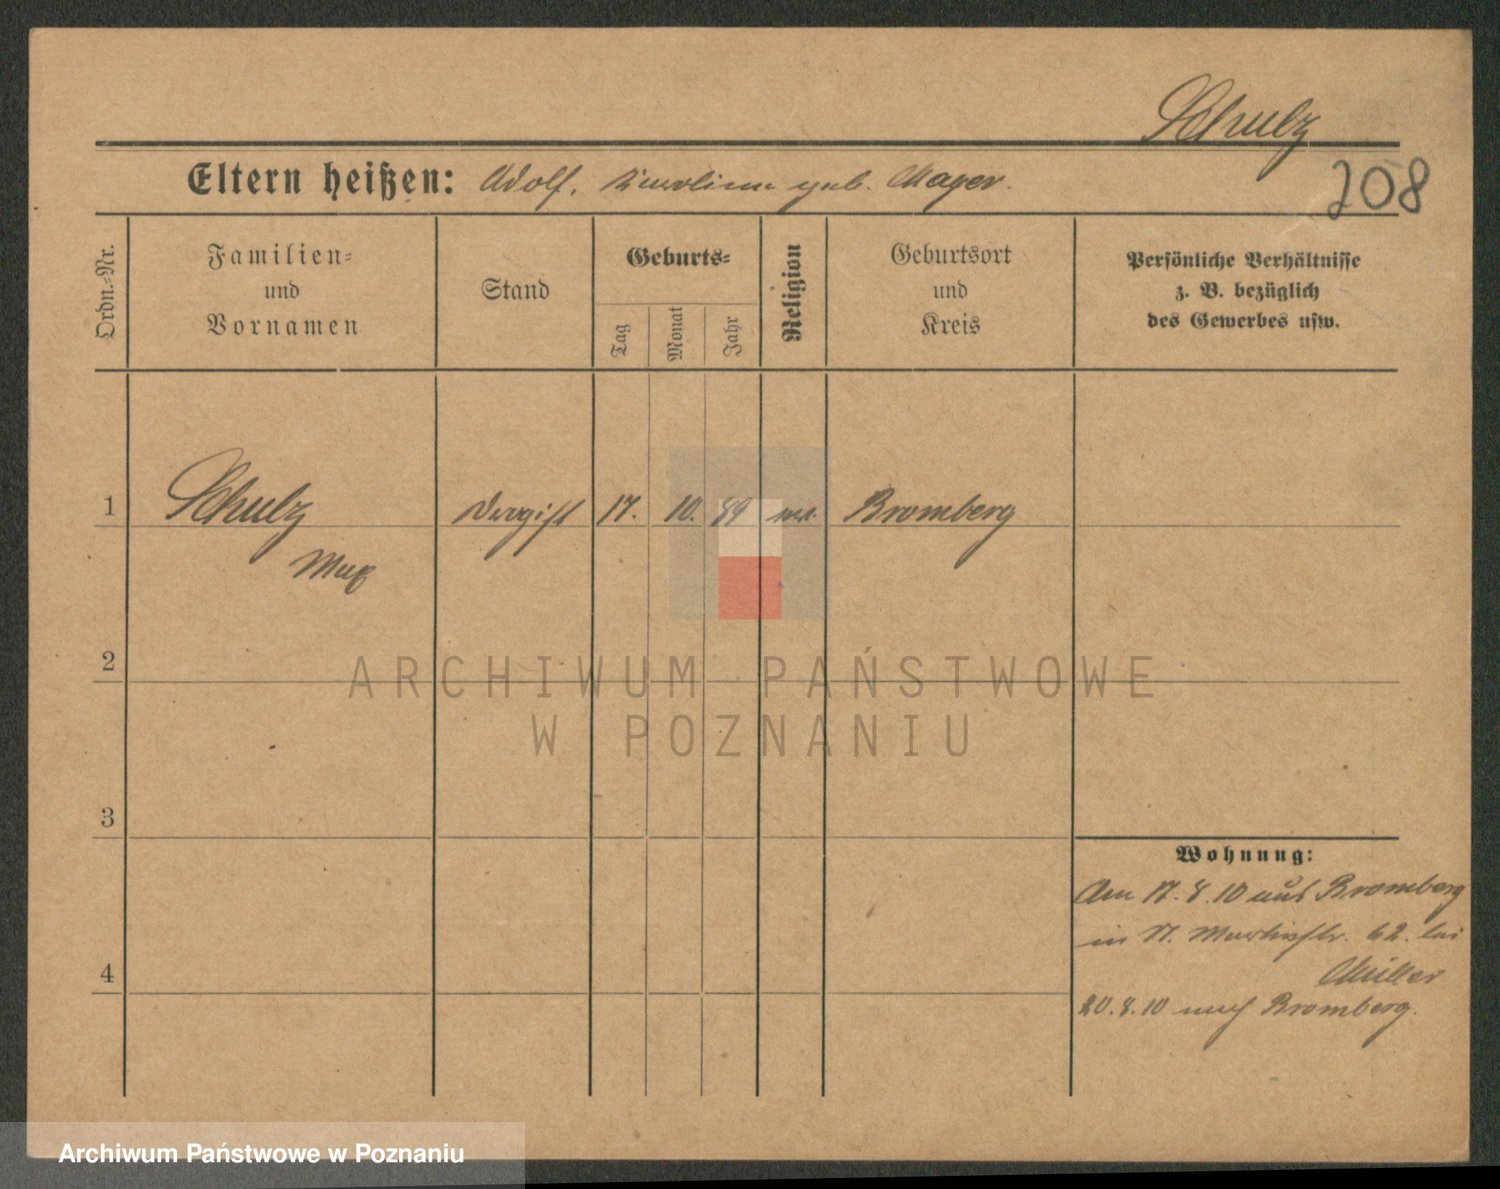 Schulz
Eltern heißen: Adolf, Karoline geb. Mager.
208
Ordn.-Nr.
Familien-
und
Vornamen
Stand
Geburts-
Tag
Monat
Jahr
Religion
Geburtsort
und
Kreis
Persönliche Verhältnisse
z. B. bezüglich
des Gewerbes usw.
1
Schulz
Max
Drogist
17.
10.
89
Bromberg
2
3
4
Wohnung:
Am 17.8.10 aus Bromberg
in St. Martinstr. 62. bei
Müller
20.8.10 nach Bromberg.
ARCHIWUM PAŃSTWOWE
W POZNANIU
Archiwum Państwowe w Poznaniu